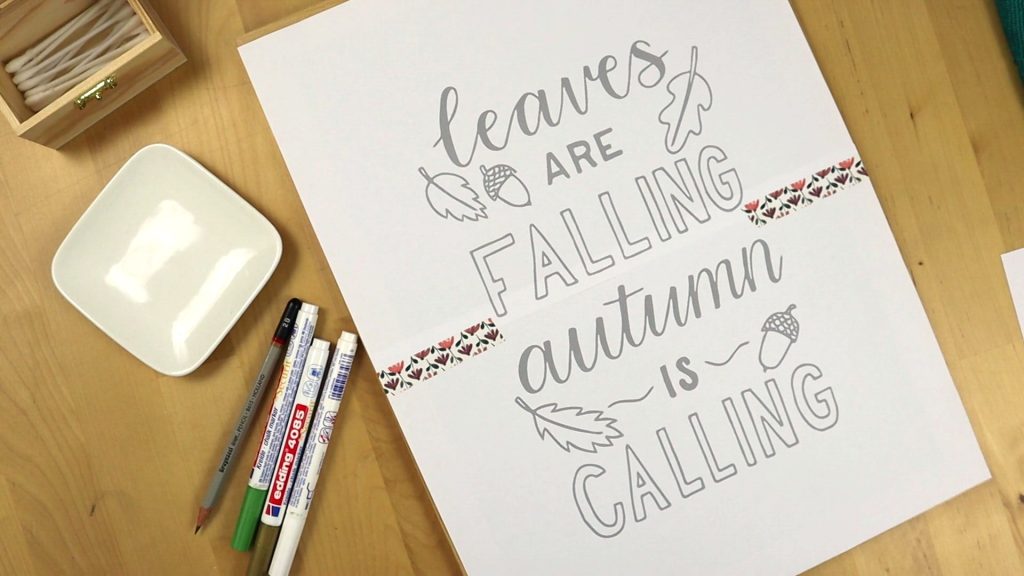 leaves
ARE
FALLING
autumn
IS
CALLING
edding 4085
2B